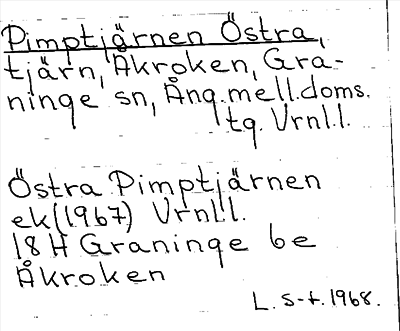 Pimptjärnen Östra,
tjärn, Åkroken, Gra-
ninge sn, Ång.mell.doms.
tg. Vrnl.l.
Östra Pimptjärnen
ek (1967) Vrnl.l.
18 H Graninge 6e
Åkroken
L. S-t. 1968.